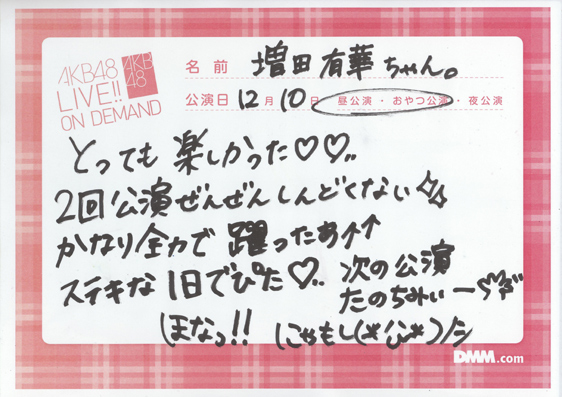 AKB48
LIVE!!
ON DEMAND
AKB
48
名前 増田有華ちゃん。
公演日 12月10日 昼公演・おやつ公演・夜公演
とっても 楽しかった♡♡..
2回公演ぜんぜんしんどくない☆☆
かなり全力で 躍ったあ↑↑
ステキな1日でぴた♡.. 次の公演
たのちみぃー
ほなっ!! にゃもし(*'ω'*)ノシ
DMM.com